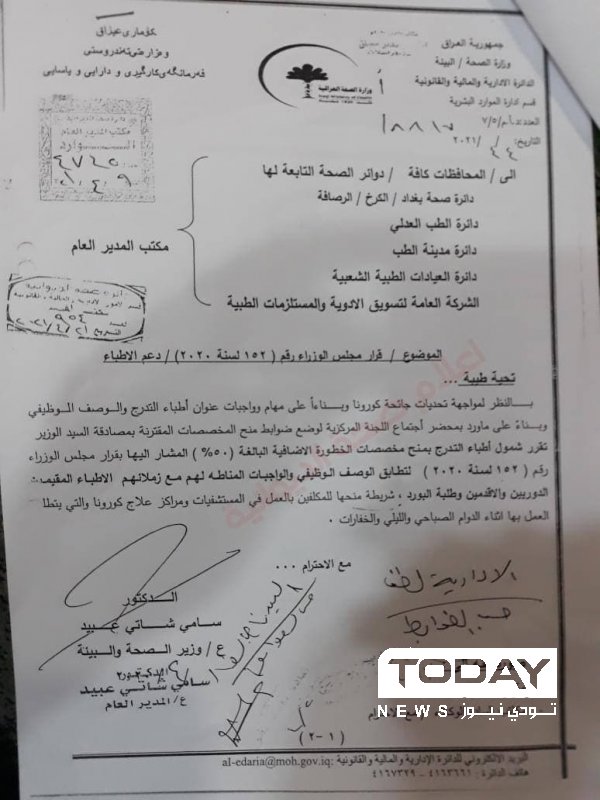 جمهورية العراق
وزارة الصحة / البيئة
الدائرة الادارية والمالية والقانونية
قسم ادارة الموارد البشرية
التاريخ: ٤/٤ /٢٠٢١
كۆماری عیراق
وەزارەتی تەندروستی
فەرمانگەی کارگیری و دارایی و یاسایی
وزارة الصحة العراقية
مكتب المدير العام
الى / المحافظات كافة / دوائر الصحة التابعة لها
دائرة صحة بغداد / الكرخ / الرصافة
دائرة الطب العدلي
دائرة مدينة الطب
دائرة العيادات الطبية الشعبية
الشركة العامة لتسويق الادوية والمستلزمات الطبية
مكتب المدير العام
الموضوع / قرار مجلس الوزراء رقم (١٥٢ لسنة ٢٠٢٠) / دعم الاطباء
تحية طيبة ...
بالنظر لمواجهة تحديات جائحة كورونا وبناءاً على مهام وواجبات عنوان أطباء التدرج والوصف الوظيفي
وبناءً على ماورد بمحضر أجتماع اللجنة المركزية لوضع ضوابط منح المخصصات المقترنة بمصادقة السيد الوزير
تقرر شمول أطباء التدرج بمنح مخصصات الخطورة الاضافية البالغة (٥٠%) المشار اليها بقرار مجلس الوزراء
رقم (١٥٢ لسنة ٢٠٢٠) لتطابق الوصف الوظيفي والواجبات المناطه لهم مع زملائهم الاطباء المقيمين
الدوريين والاقدمين وطلبة البورد ، شريطة منحها للمكلفين بالعمل في المستشفيات ومراكز علاج كورونا والتي يتطلب
العمل بها اثناء الدوام الصباحي والليلي والخفارات .
مع الاحترام ...
الادارية لطفا
حسب الضوابط
الدكتور
سامي شاتي عبيد
ع / وزير الصحة والبيئة
الدكتور
سامي شاتي عبيد
ع/ المدير العام
TODAY
NEWS تودي نيوز
(١-٢)
البريد الالكتروني للدائرة الإدارية والمالية والقانونية :al-edaria@moh.gov.iq
هاتف الدائرة : ٤١٦٣٦٦١ - ٤١٦٧٣٢٩